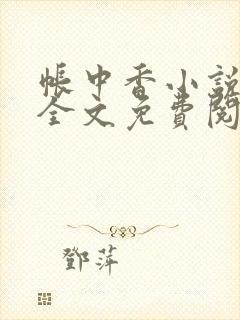 帳中香小說
全文免費閱
鄧萍